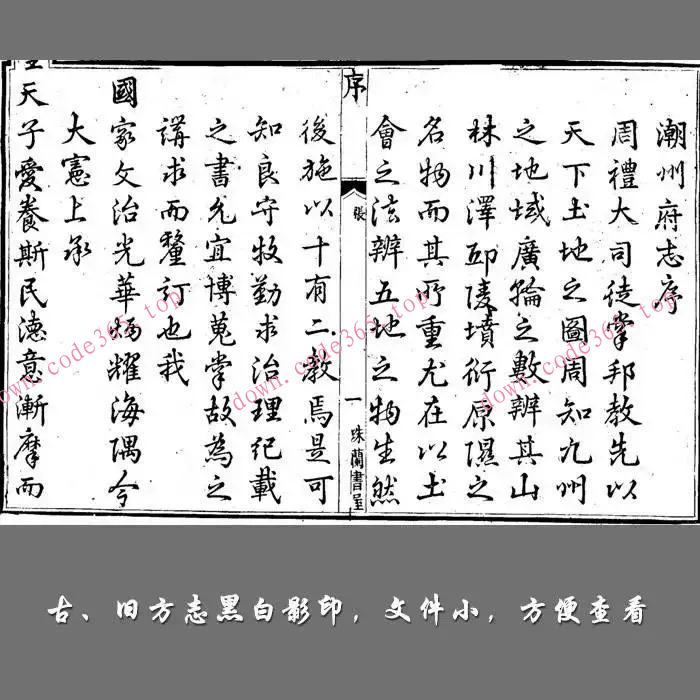 潮州府志序
周禮大司徒掌邦教先以
天下土地之圖周知九州
之地域廣輪之數辨其山
林川澤邱陵墳衍原隰之
名物而其所重尤在以土
會之法辨五地之物生然
序
張
一
珠蘭書屋
後施以十有二教焉是可
知良守牧勤求治理紀載
之書允宜博蒐掌故為之
講求而釐訂也我
國家文治光華炳耀海隅今
大憲上承
天子愛養斯民德意漸摩而
down.code365.top
down.code365.top
古、旧方志黑白影印，文件小，方便查看